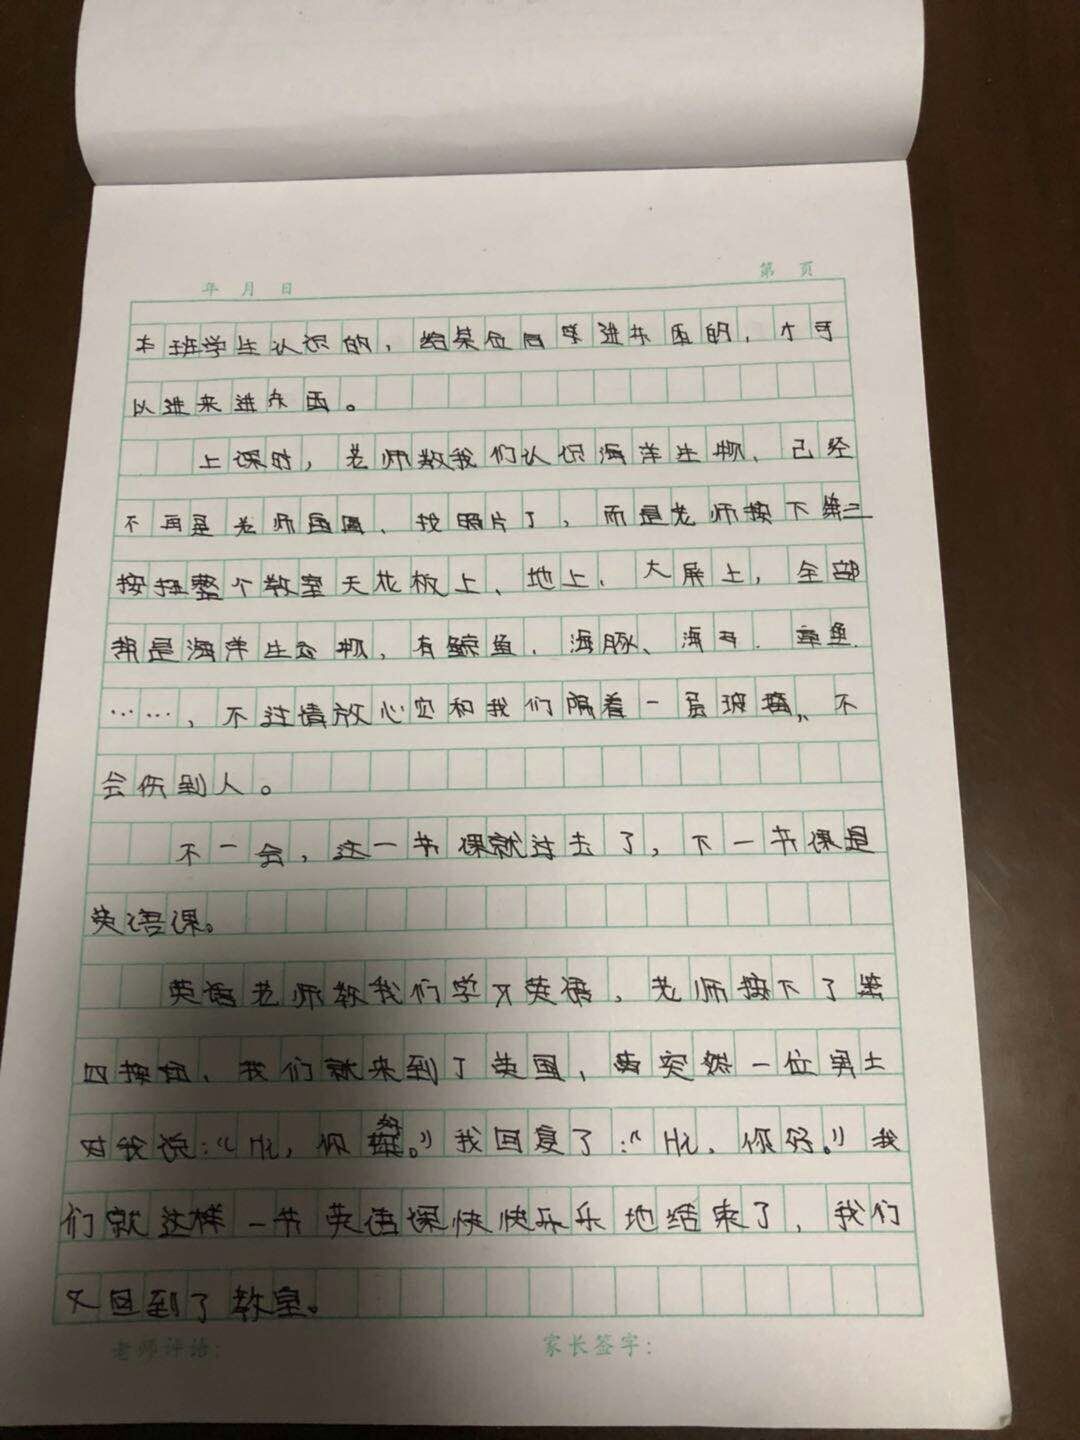 年 月 日
第 页
本班学生认识的，给某位同学进东西的，才可
以进来进东西。
上课时，老师教我们认识海洋生物、已经
不再是老师画图、找照片了，而是老师按下第三
按扭整个教室天花板上、地上、大屏上，全部
都是海洋生物，有鲸鱼、海豚、海牙、章鱼.
……，不过请放心它和我们隔着一层玻璃、不
会伤到人。
不一会，这一节课就过去了，下一节课是
英语课。
英语老师教我们学习英语，老师按下了第
四按扭、我们就来到了英国，突然一位男士
对我说：“Hi，你好。”我回复了：“Hi，你好。”我
们就这样一节英语课快快乐乐地结束了，我们
又回到了教室。
老师评语：
家长签字：